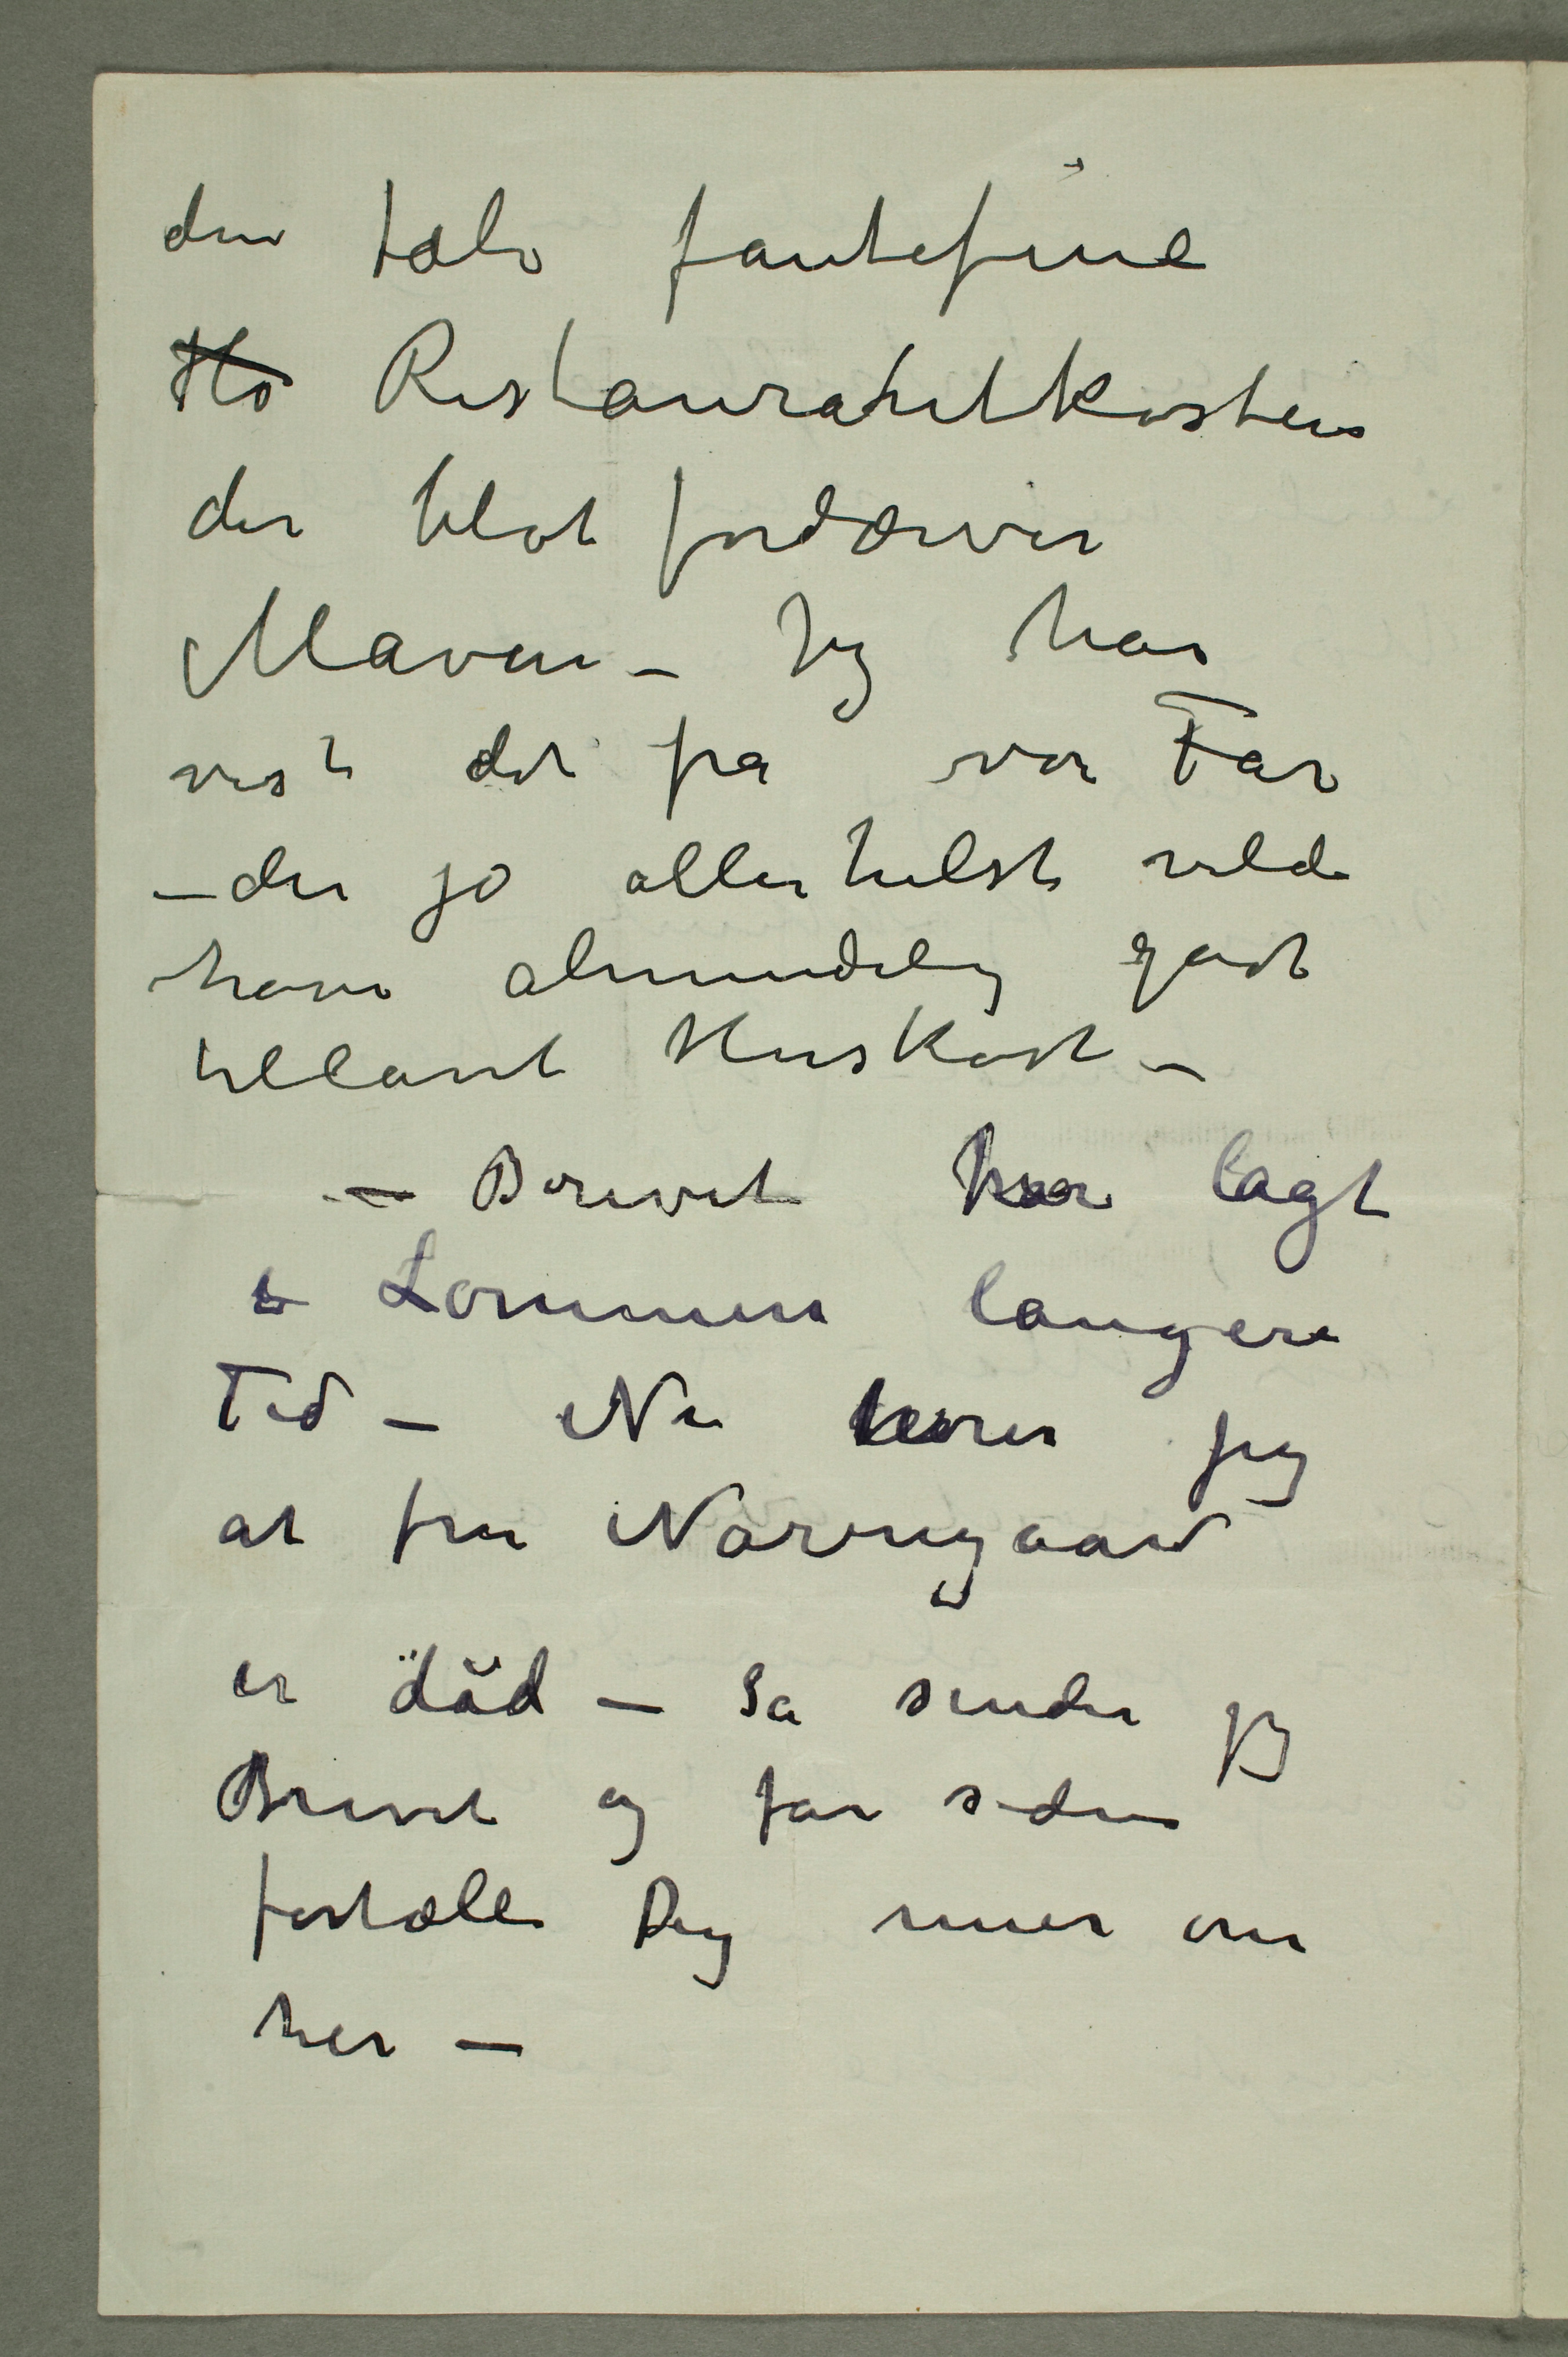 den tolv fantefine
Ho Restaurantkosten
der blot fordærver
Maven – Jeg har
vist det fra vor Far
– der jo aller helst vilde
have almindelig godt
tillavet Huskost –
– Brevet har lagt
i Lommen længere
Tid – Nu hører jeg
at fru Nørregaard
er död – Så sender jeg
Brevet og får siden
fortælle Dig mer om
her –